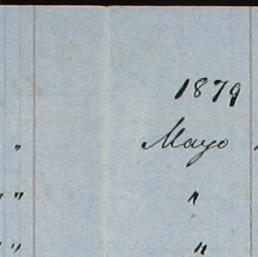 1879
" Mayo
" " "
" " "